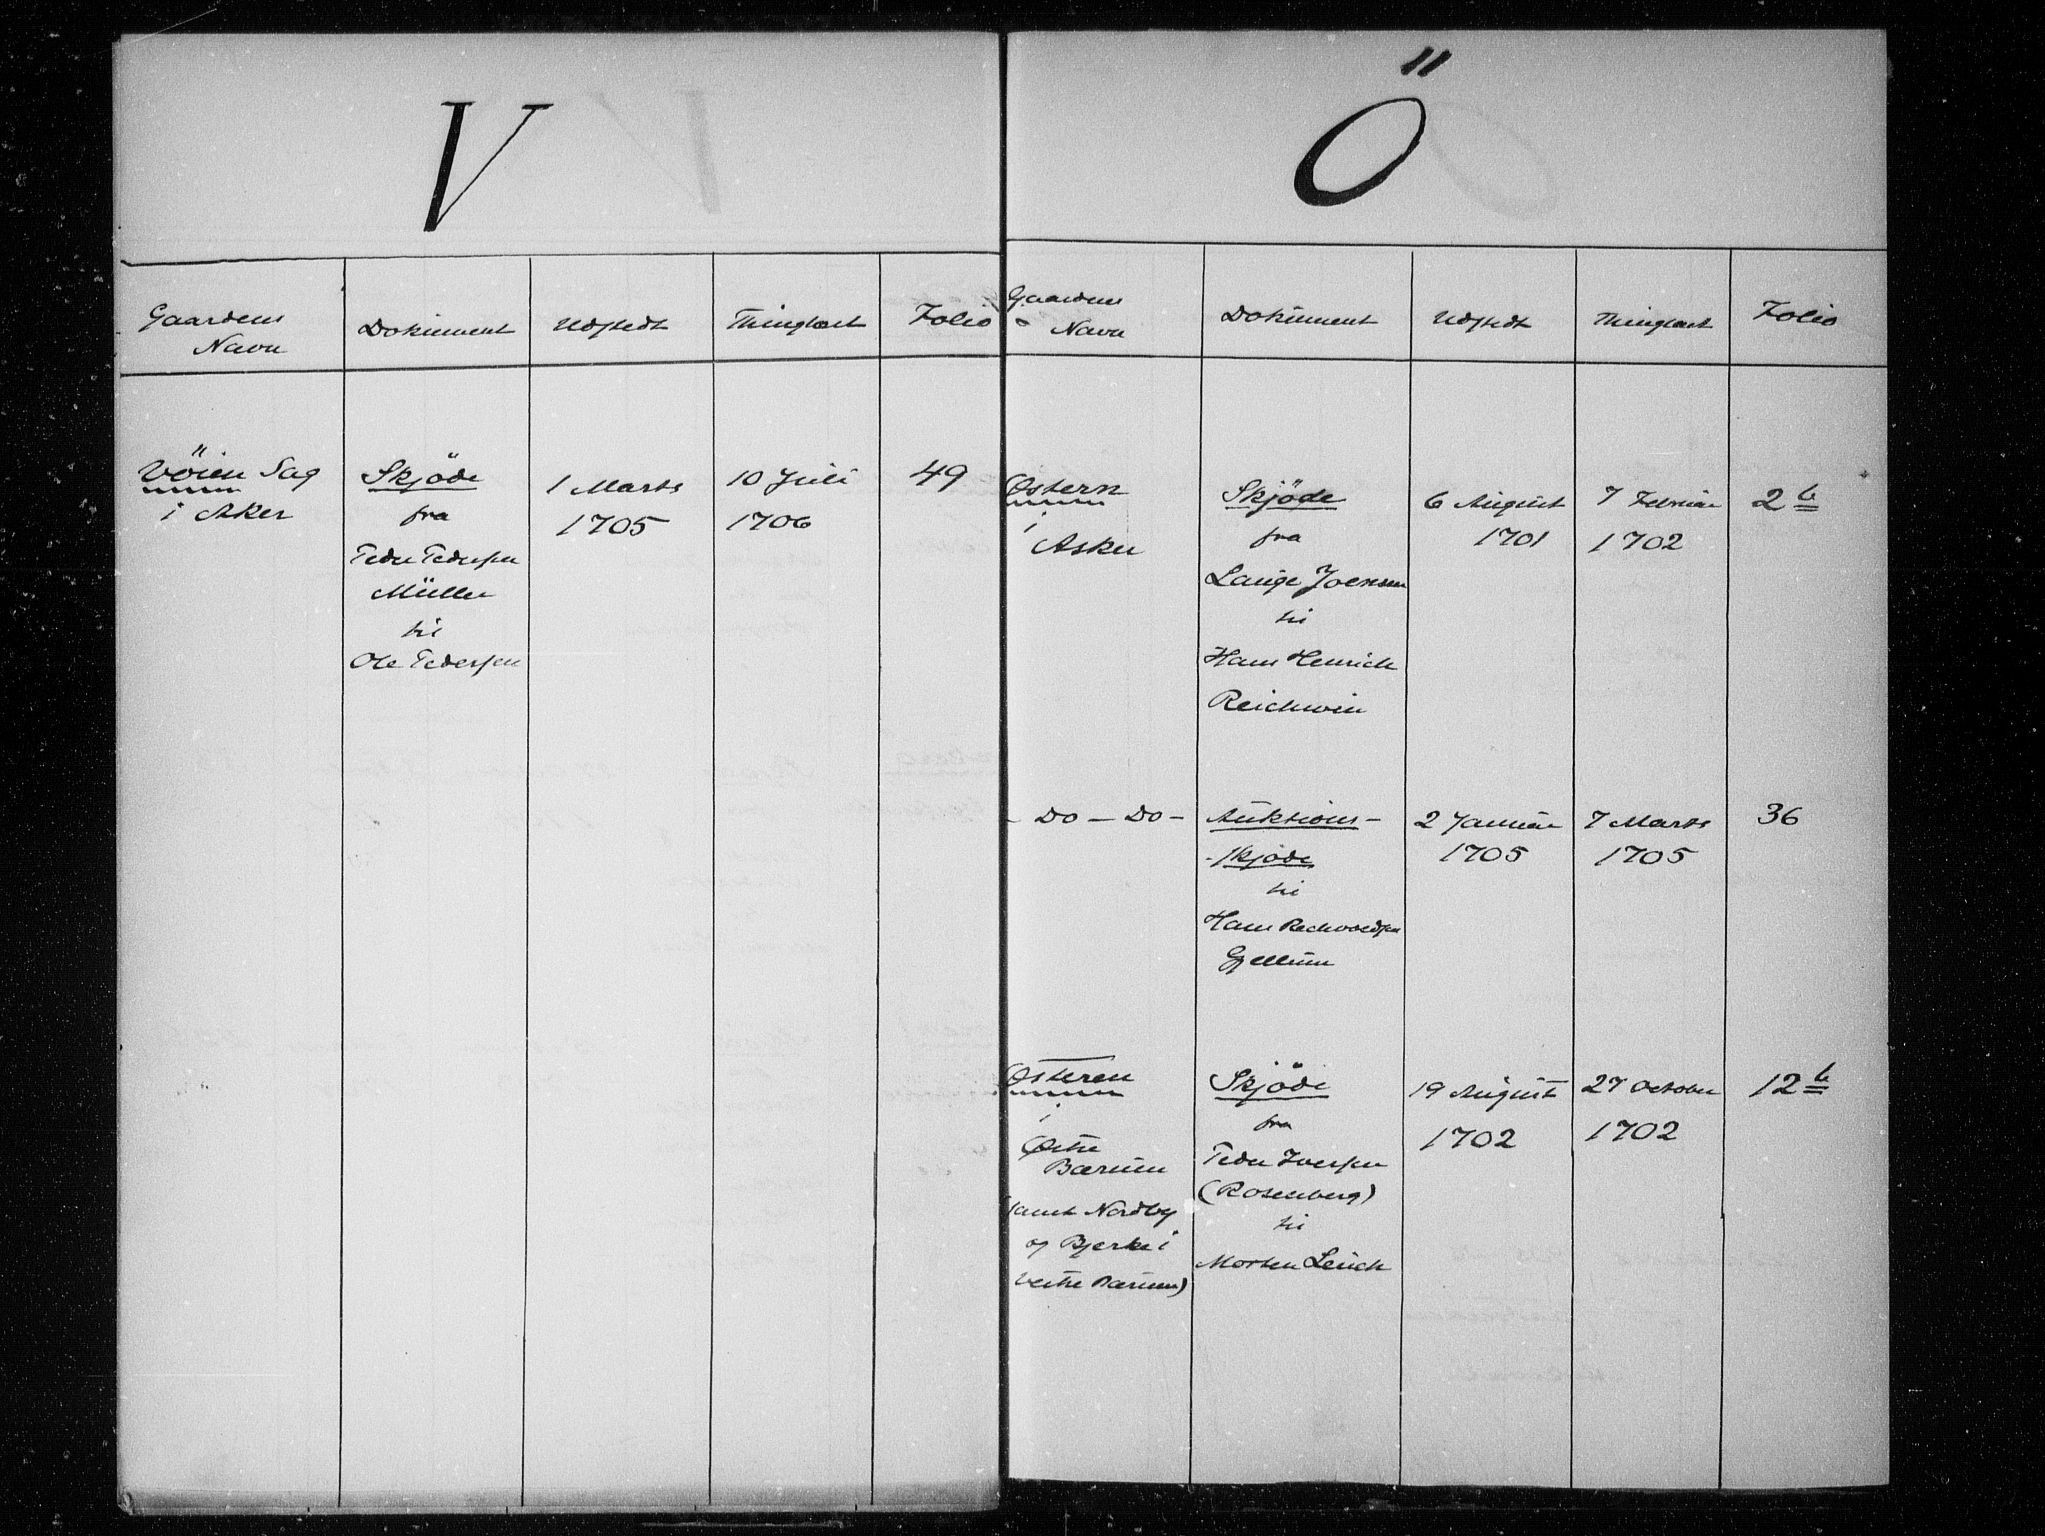 V
Gaardens Navn
Dokument
Udstedt
Thinglæst
Folio
Vöien Sag
i Aker
Skjöde
fra
Peder Pedersen
Müller
til
Ole Pedersen
1 Marts
1705
10 Juli
1706
49
Ö
Gaardens Navn
Dokument
Udstedt
Thinglæst
Folio
Østern
i
Asker
Skjöde
fra
Lauge Joensen
til
Hans Henrich
Reichwein
6 August
1701
7 Februar
1702
2 b
- Do - Do -
Auktions-
-skjöde
til
Hans
Gjellum
2 Januar
1705
7 Marts
1705
36
Østeren
i
Østre
Bærum
(samt Nordby
og Bjerke i
Vestre Bærum)
Skjöde
fra
Peder Iversen
(Rosenberg)
til
Morten Leuch
19 August
1702
27 October
1702
12 b